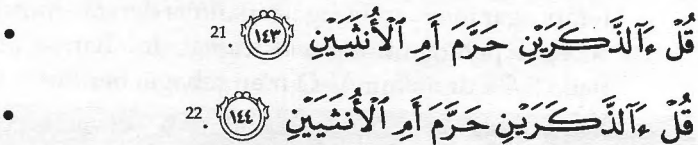 • قُلْ ءَآلذَّكَرَيْنِ حَرَّمَ أَمِ ٱلْأُنثَيَيْنِ ١٤٣ .21
• قُلْ ءَآلذَّكَرَيْنِ حَرَّمَ أَمِ ٱلْأُنثَيَيْنِ ١٤٤ .22